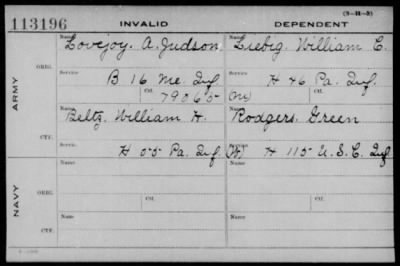 (3-H-3)
113196 INVALID DEPENDENT
Name Name
Lovejoy. A. Judson. Liebig. William C.
ORIG.
Service Service
B 16 Me. Inf. H 46 Pa. Inf.
Ctf. Ctf.
79065 (M)
ARMY
Name Name
Beltz, William H. Rodgers. Green
CTF.
Service
H 55 Pa. Inf. (W) H 115 U.S.C. Inf.
NAVY
Name Name
ORIG.
Service Ctf. Service Ctf.
Name Name
CTF.
Service Service